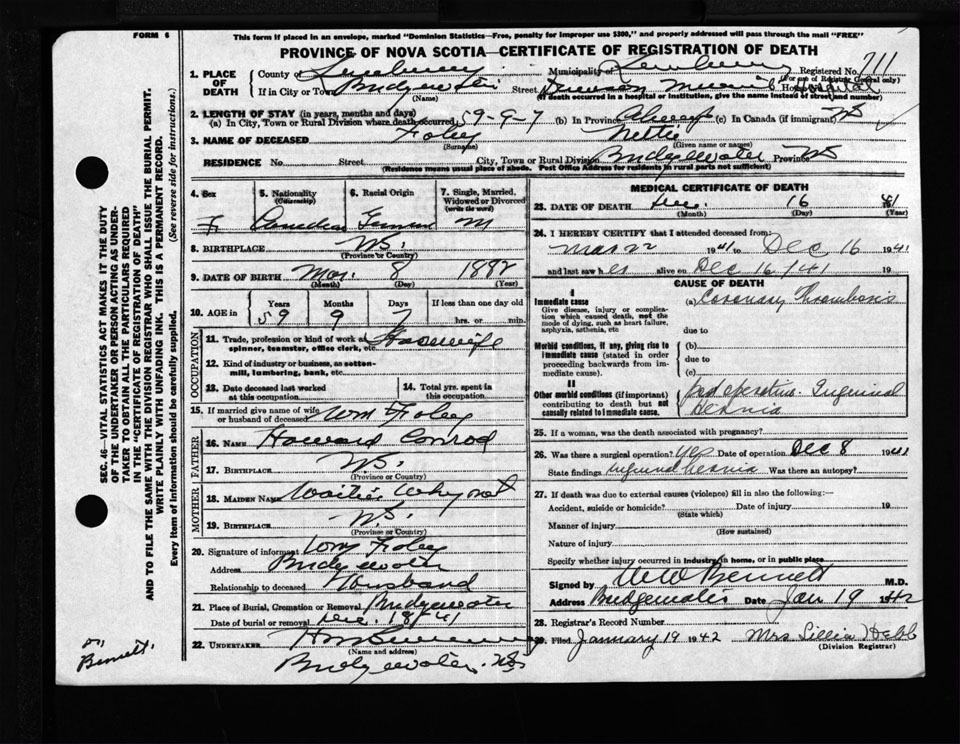 FORM 6
This form if placed in an envelope, marked "Dominion Statistics—Free, penalty for improper use $300," and properly addressed will pass through the mail "FREE"
PROVINCE OF NOVA SCOTIA—CERTIFICATE OF REGISTRATION OF DEATH
1. PLACE OF DEATH
County of Lunenburg Municipality of Lunenburg Registered No. 711
(For use of Registrar General only)
If in City or Town Bridgewater Street Dawson Memorial Hospital
(Name) (If death occurred in a hospital or institution, give the name instead of street and number)
2. LENGTH OF STAY (in years, months and days)
(a) In City, Town or Rural Division where death occurred 59-9-7 (b) In Province Always (c) In Canada (if immigrant)
3. NAME OF DECEASED Foley Nettie
(Surname) (Given name or names)
RESIDENCE No. Street City, Town or Rural Division Bridgewater Province NS
(Residence means usual place of abode. Post Office Address for residents in rural parts not sufficient)
SEC. 46—VITAL STATISTICS ACT MAKES IT THE DUTY
OF THE UNDERTAKER OR PERSON ACTING AS UNDER-
TAKER TO OBTAIN ALL THE PARTICULARS REQUIRED
IN THE "CERTIFICATE OF REGISTRATION OF DEATH"
AND TO FILE THE SAME WITH THE DIVISION REGISTRAR WHO SHALL ISSUE THE BURIAL PERMIT.
WRITE PLAINLY WITH UNFADING INK. THIS IS A PERMANENT RECORD.
Every item of Information should be carefully supplied. (See reverse side for instructions.)
4. Sex 5. Nationality (Citizenship) 6. Racial Origin 7. Single, Married, Widowed or Divorced (write the word)
F Canadian German M
8. BIRTHPLACE N.S.
(Province or Country)
9. DATE OF BIRTH Mar. 8 1882
(Month) (Day) (Year)
10. AGE in Years Months Days If less than one day old
59 9 7 hrs. or min.
OCCUPATION
11. Trade, profession or kind of work as spinner, teamster, office clerk, etc. Housewife
12. Kind of industry or business, as cotton-mill, lumbering, bank, etc.
13. Date deceased last worked at this occupation 14. Total yrs. spent in this occupation
15. If married give name of wife or husband of deceased Wm Foley
FATHER
16. NAME Howard Conrad
17. BIRTHPLACE N.S.
(Province or Country)
MOTHER
18. MAIDEN NAME Whynot
19. BIRTHPLACE N.S.
(Province or Country)
20. Signature of informant Wm Foley
Address Bridgewater
Relationship to deceased Husband
21. Place of Burial, Cremation or Removal Bridgewater
Date of burial or removal Dec. 18/41
22. UNDERTAKER
(Name and address)
Bridgewater. NS
Bennett.
MEDICAL CERTIFICATE OF DEATH
23. DATE OF DEATH Dec. 16 41
(Month) (Day) (Year)
24. I HEREBY CERTIFY that I attended deceased from:
1941 to Dec 16 1941
and last saw her alive on Dec 16/41 19
CAUSE OF DEATH
I
Immediate cause
Give disease, injury or complication which caused death, not the mode of dying, such as heart failure, asphyxia, asthenia, etc
(a) Coronary Thrombosis
due to
Morbid conditions, if any, giving rise to immediate cause (stated in order proceeding backwards from immediate cause).
(b)
due to
(c)
II
Other morbid conditions (if important) contributing to death but not causally related to immediate cause.
Post operative Inguinal
Hernia
25. If a woman, was the death associated with pregnancy?
26. Was there a surgical operation? Yes Date of operation Dec 8 1941
State findings Inguinal hernia Was there an autopsy?
27. If death was due to external causes (violence) fill in also the following:—
Accident, suicide or homicide? Date of injury 19
(State which)
Manner of injury
(How sustained)
Nature of injury
Specify whether injury occurred in industry, in home, or in public place
Signed by Bennett M.D.
Address Bridgewater Date Jan 19 1942
28. Registrar's Record Number
29. Filed January 19 1942 Mrs. Lillia Hebb
(Division Registrar)